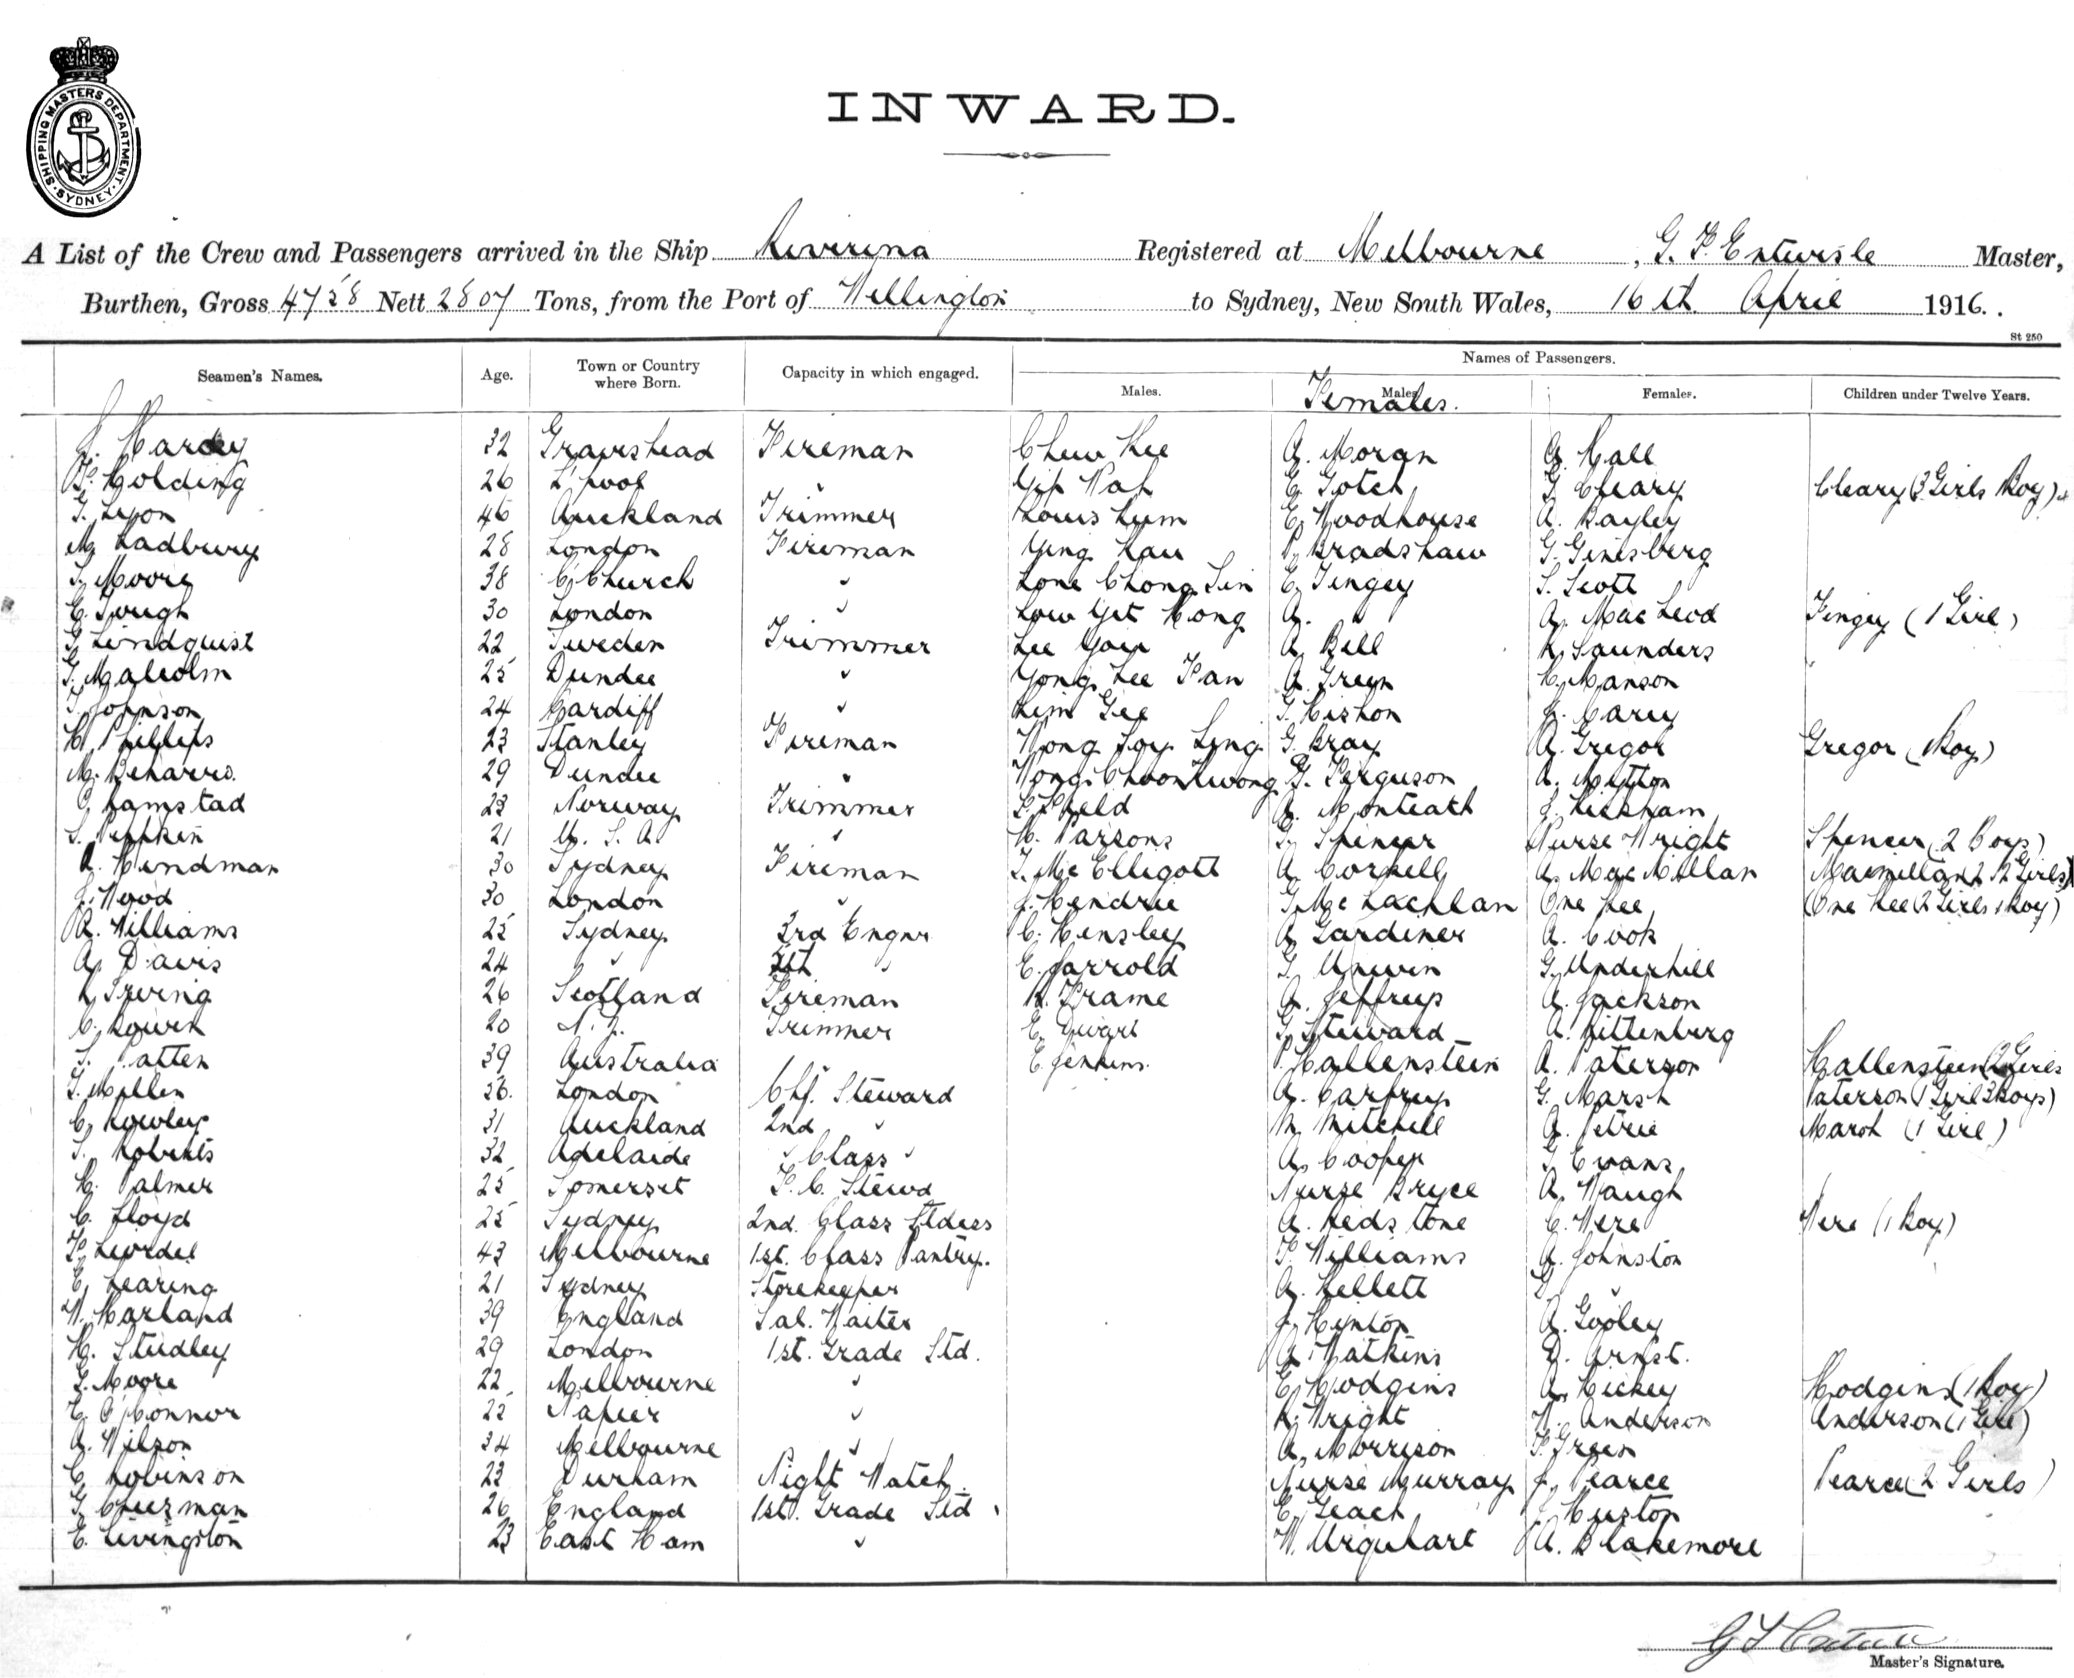 SHIPPING MASTERS DEPARTMENT. SYDNEY
INWARD.
A List of the Crew and Passengers arrived in the Ship Riverina Registered at Melbourne, G. P. Entwisle Master,
Burthen, Gross 4758 Nett 2807 Tons, from the Port of Wellington to Sydney, New South Wales, 16th April 1916.
St 250
Names of Passengers.
Seamen's Names. Age. Town or Country where Born. Capacity in which engaged. Males. Males Females. Females. Children under Twelve Years.
32 Fireman Chew Kee A. Moran A. Hall
Holding 26 L'pool " Yip Wah E. Gotch G. Cleary Cleary (3 Girls Boy)
G. Lyon 46 Auckland Trimmer Louis Lum E. Woodhouse A. Bayley
M. Ladbury 28 London Fireman Ying Kau Bradshaw G. Ginesberg
S. Moore 38 C'Church " Lone Chong Sin E. Tingey S. Scott
30 London " Low Yet Hong A. " A. Mac Leod Tingey (1 Girl)
G. Lindquist 22 Sweden Trimmer Lee You A. Bell Saunders
G. Malcolm 25 Dundee " Yong Lee Fan A. Green C. Manson
Johnson 24 Cardiff " Lim Gee G. Cary
H. Phillips 23 Stanley Fireman Wong Soy Ling G. Bray A. Gregor Gregor (1 Boy)
M. Beharrs. 29 Dundee " Wong Choon Kwong G. Ferguson A. Mutton
Ramstad 23 Norway Trimmer Field A. Monteath J. Kickham
S. 21 U. S. A. " H. Parsons G. Spencer Nurse Wright Spencer (2 Boys)
A. Hindman 30 Sydney Fireman McElligott A. Cornell A. Mac Millan Macmillan (2 Girls)
J. Wood 30 London " J. Hendrie G. McLachlan One Lee (One Lee (2 Girls 1 Boy)
R. Williams 25 Sydney 3rd Engnr C. Hensley A. Gardiner A. Cook
A. Davis 24 " " E. Jarrold G. Unwin G. Underhill
Irving 26 Scotland Fireman R. Frame A. Jeffreys A. Jackson
C. 20 N. Z. Trimmer E. Steward A. Rittenberg
39 Australia " E. Jenkins. Hallenstein A. Paterson Hallenstein (2 Girls
G. Millen 36. London Chf. Steward A. G. Marsh Paterson (1 Girl 3 Boys)
C. Rowley 31 Auckland 2nd " M. Mitchell A. Petrie Marsh (1 Girl)
S. Roberts 32 Adelaide " Class " A. Cooper G. Evans
H. Palmer 25 Somerset F. C. Stewd Nurse Bryce A. Waugh
C. Lloyd 25 Sydney 2nd. Class Stdess A. Redstone C. Vere Vere (1 Boy)
43 Melbourne 1st. Class Pantry. F. Williams A. Johnston
E. 21 Sydney Storekeeper A. Kellett G. "
W. Harland 39 England Sal. Waiter J. Hinton A. Gooley
H. Studley 29 London 1st. Grade Std. A. Watkins D. Arnst.
G. Moore 22 Melbourne " E. Hodgins A. Hickey Hodgins (1 Boy)
E. O'Connor 22 Napier " R. Wright W. Anderson Anderson (1 Girl)
A. Wilson 34 Melbourne " A. Morrison F. Green
C. Robinson 23 Durham Night Watch. Nurse Murray J. Pearce Pearce (2 Girls)
G. Cheezman 26 England 1st. Grade Std E. Geach J. Huston
E. Livingston 23 East Ham " W. Urquhart A. Blakemore
Master's Signature.